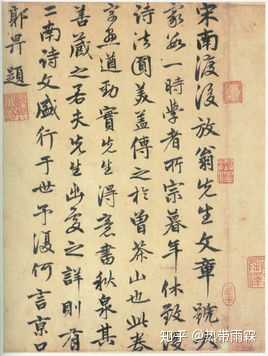 宋南渡後放翁先生文章號大
家数一時學者所宗暮年休致
詩法圓美蓋傳之於曾茶山也此卷
字画遒勁實先生得意書秋泉其
善藏之若夫先生出處之詳則有
二南詩文盛行于世予復何言京口
郭畀題
知乎 @热带雨霖